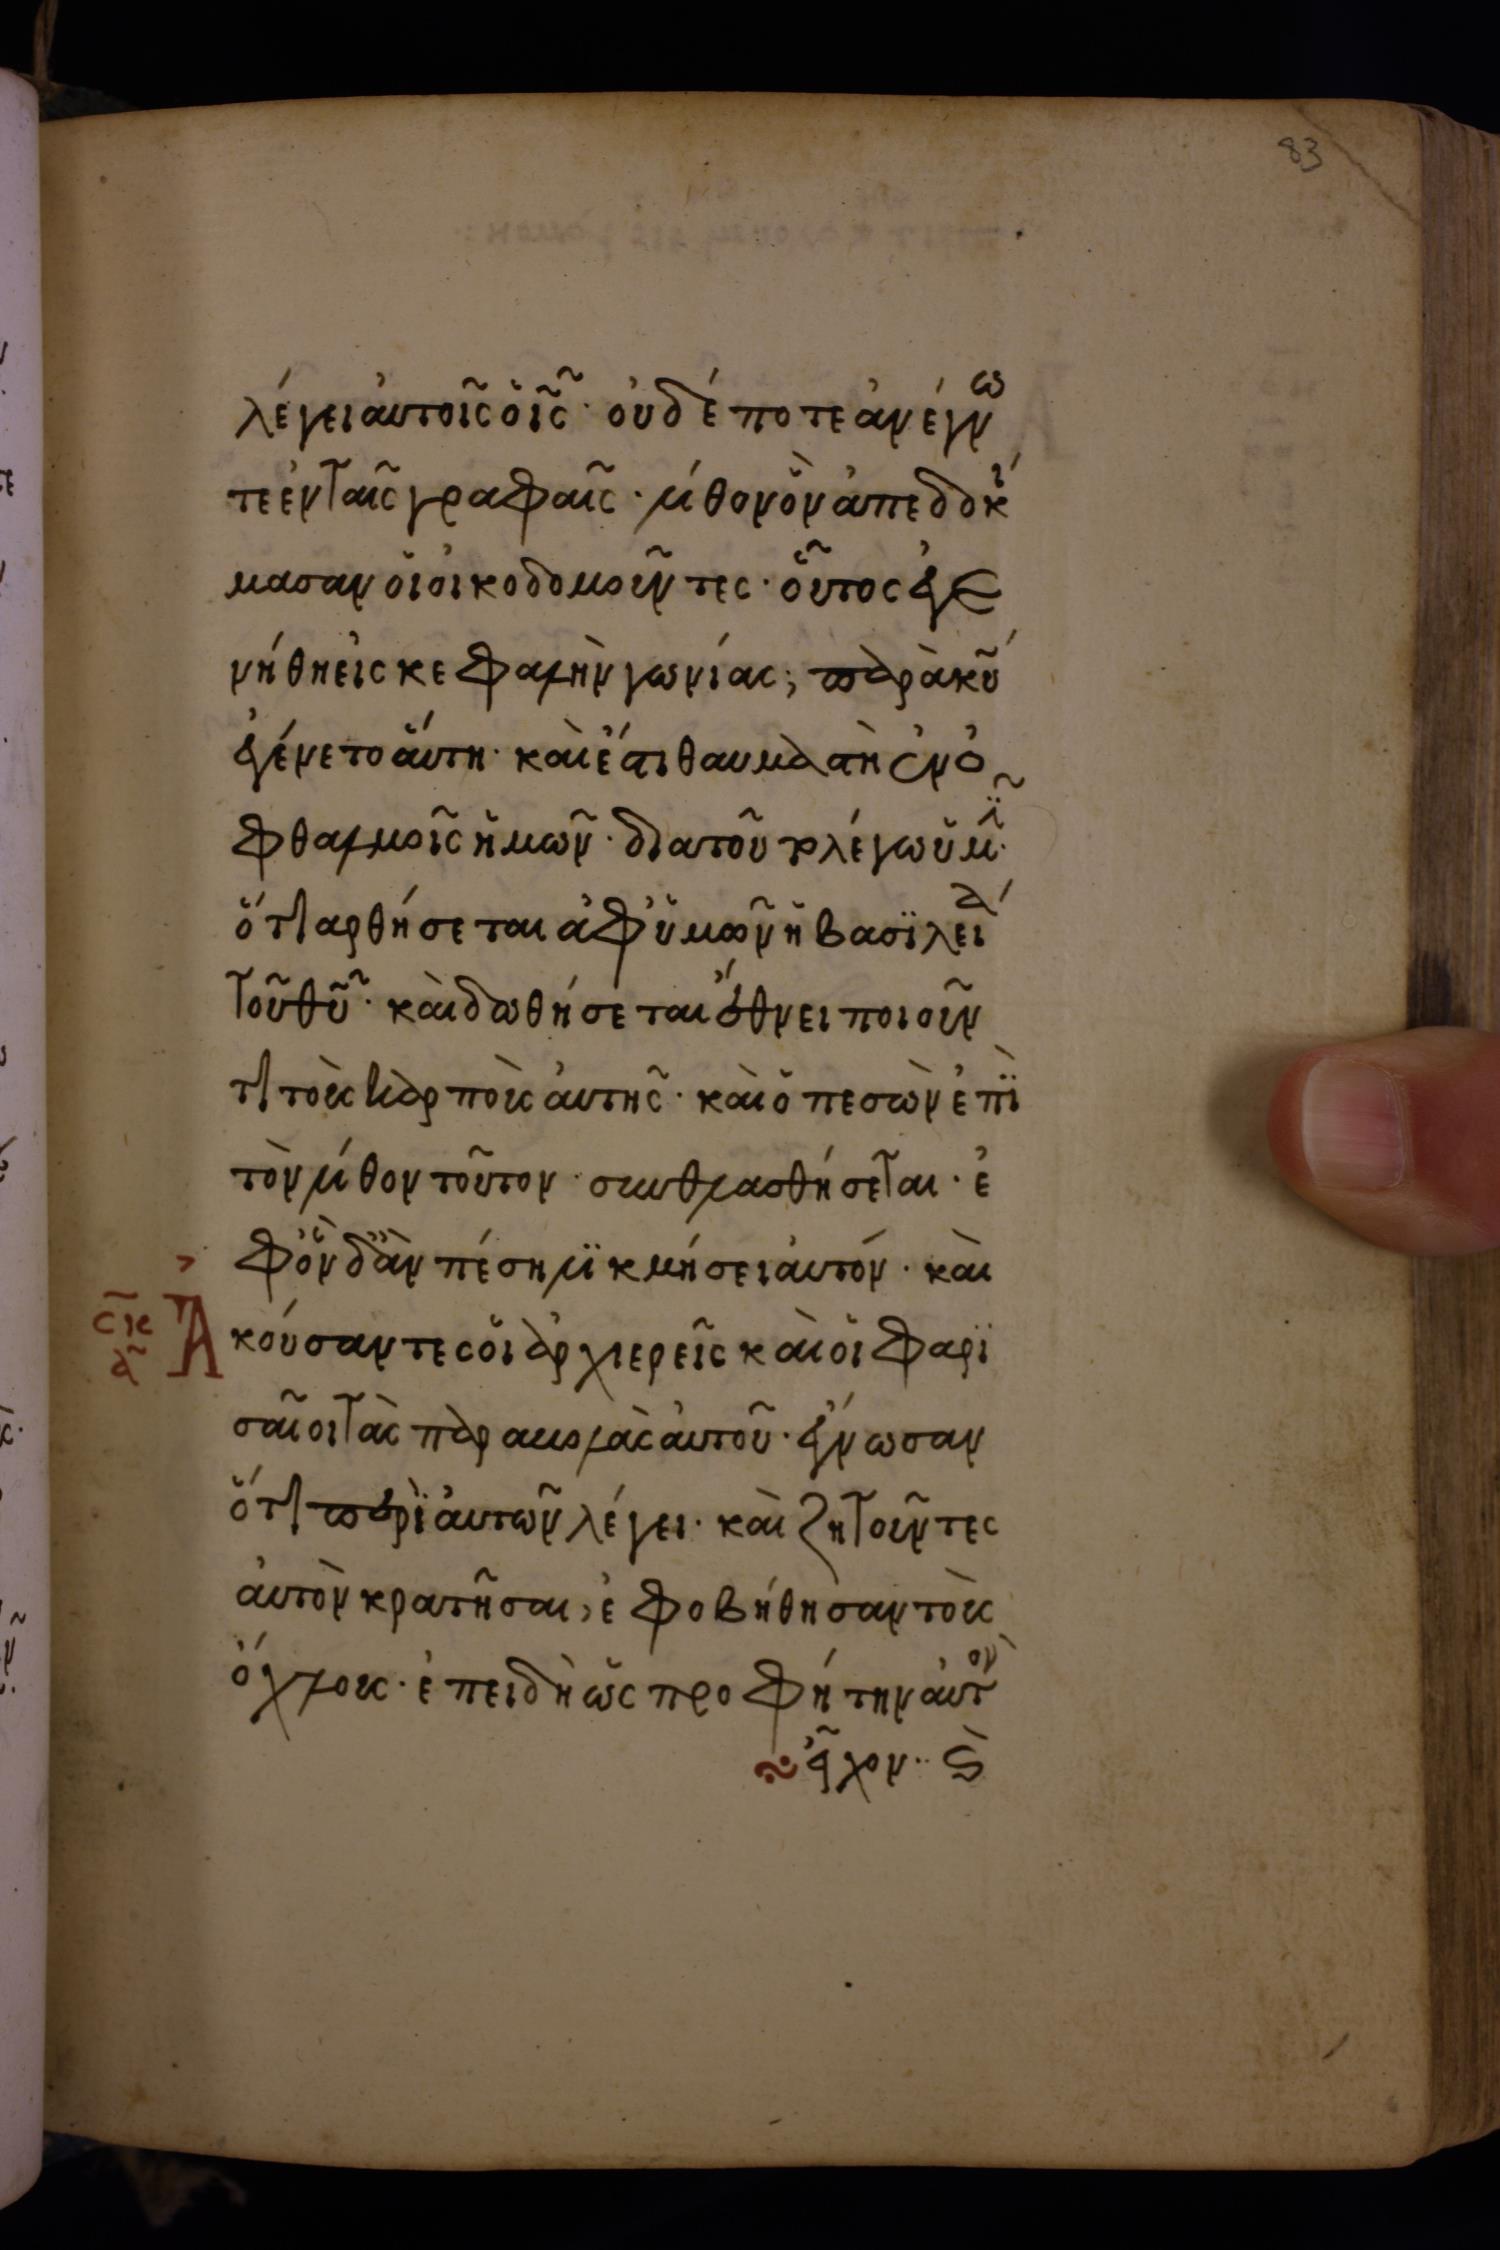 83
λέγει αὐτοῖς ὁ ῖς͂· οὐδέποτε ἀνέγνω
τε ἐν ταῖς γραφαῖς· λίθον ὃν ἀπεδοκί
μασαν οἱ οἰκοδομοῦντες· οὗτος ἐγε
νήθη εἰς κεφαλὴν γωνίας; παρὰ κῦ
ἐγένετο αὕτη· καὶ ἔστι θαυμαστὴ ἐν ὀ
φθαλμοῖς ἡμῶν· διατοῦτο λέγω ὑμῖν·
ὅτι αρθήσεται ἀφ ὑμῶν ἡ βασϊλεία
τοῦ θῦ· καὶ δωθήσεται ἔθνει ποιοῦν
τι τοὺς καρποὺς ἀυτῆς· καὶ ὁ πεσὼν ἐπὶ
τὸν λίθον τοῦτον συνθλασθήσεται· ἐ
φ ὃν δ ἂν πέση λϊκμήσει ἀυτόν· καὶ
σιε
α Ἀ κούσαντες οἱ ἀρχιερεῖς καὶ οἱ Φαρϊ
σαῖοι τὰς παραβολὰς ἀυτοῦ· ἔγνωσαν
ὅτι περὶ ἀυτῶν λέγει· καὶ ζητοῦντες
ἀυτὸν κρατῆσαι, ἐφοβήθησαν τοὺς
ὄχλους· ἐπειδὴ ὡς προφήτην ἀυτὸν
εἶχον·